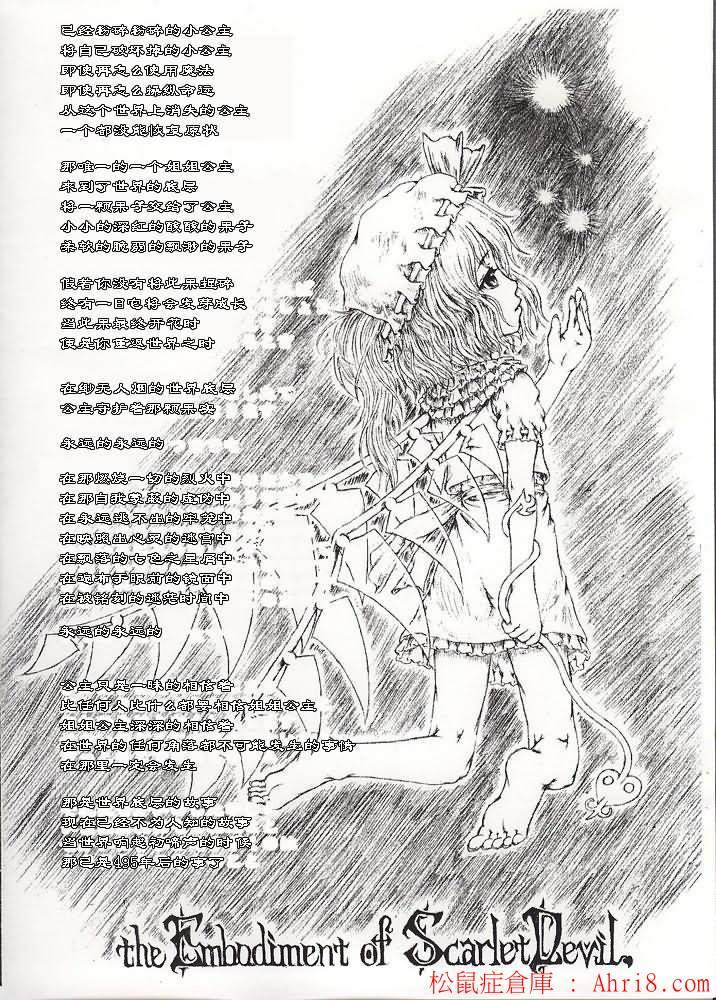 已经粉碎粉碎的小公主
将自己破坏掉的小公主
即使再怎么使用魔法
即使再怎么操纵命运
从这个世界上消失的公主
一个都没能恢复原状
那唯一的一个姐姐公主
来到了世界的底层
将一颗果子交给了公主
小小的深红的酸酸的果子
柔软的脆弱的飘渺的果子
假若你没有将此果捏碎
终有一日它将会发芽成长
当此果最终开花时
便是你重返世界之时
在渺无人烟的世界底层
公主守护着那颗果实
永远的永远的
在那燃烧一切的烈火中
在那自我蒙蔽的虚伪中
在永远逃不出的牢笼中
在映照出心灵的迷宫中
在飘落的七色之星屑中
在遍布于眼前的镜面中
在被铭刻的迷茫时间中
永远的永远的
公主只是一昧的相信着
比任何人比什么都要相信姐姐公主
姐姐公主深深的相信着
在世界的任何角落都不可能发生的事情
在那里一定会发生
那是世界底层的故事
现在已经不为人知的故事
当世界响起初啼声的时候
那已是495年后的事了
the Embodiment of Scarlet Devil.
松鼠症倉庫 : Ahri8.com